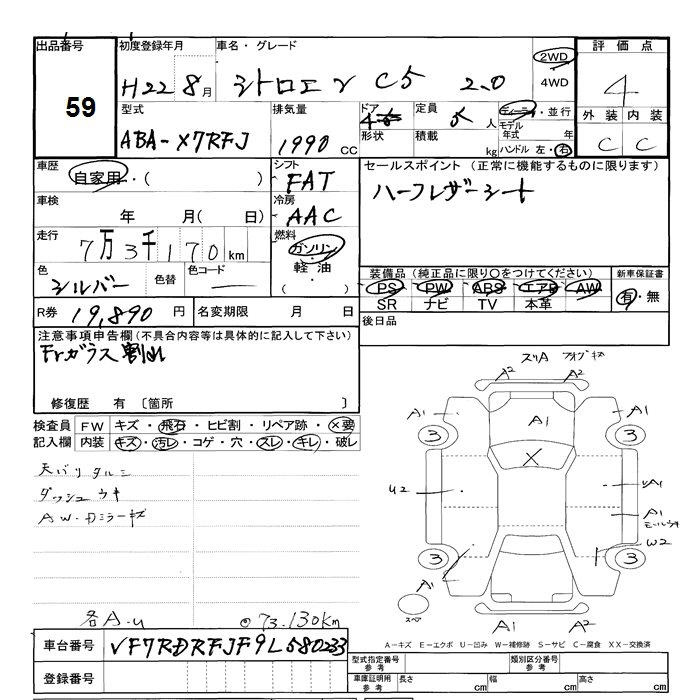 出品番号 初度登録年月 車名・グレード 評価点
59 H22 8月 シトロエン C5 2.0 2WD 4WD 4
型式 排気量 ドア 定員 ディーラ・並行 外装 内装
ABA-X7RFJ 1990 CC 形状 積載 人 kg モデル年式 年 ハンドル 左・右 C C
車歴 自家用・( ) シフト FAT セールスポイント (正常に機能するものに限ります)
車検 年 月( 日) 冷房 AAC ハーフレザーシート
走行 7万3千170km 燃料 ガソリン 軽油 ・( )
色 シルバー 色替 色コード 装備品(純正品に限り○をつけてください) 新車保証書
PS PW ABS エアB AW 有・無
SR ナビ TV 本革
R券 19,890円 名変期限 月 日 後日品
注意事項申告欄(不具合内容等は具体的に記入して下さい)
Frガラス割れ
修復歴 有 〔箇所 〕
検査員 FW キズ・飛石・ヒビ割・リペア跡・×要
記入欄 内装 キズ・汚レ・コゲ・穴・スレ・キレ・破レ
天バリタルミ
ダッシュウキ
AW・Dミラーキズ
各A.U ◎73.130km
スリA フォグキズ
A2 A2
A1 A1 A1
3 3
X
U2 A1
A1 モールウキ
W2
3 3
A1
スペア A1 A2
A-キズ E-エクボ U-凹み W-補修跡 S-サビ C-腐食 XX-交換済
車台番号 VF7RDRFJF9L580233
型式指定番号 参考 類別区分番号 参考
登録番号 車庫証明用 参考 長さ cm 幅 cm 高さ cm